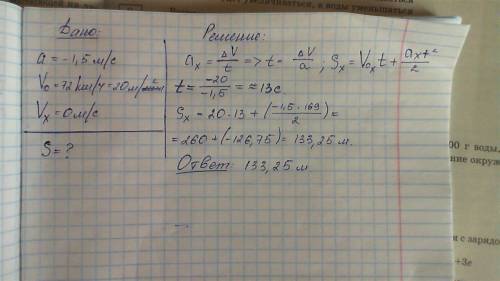 Дано:
a = -1,5 м/с
V₀ = 72 км/ч = 20 м/с
Vₓ = 0 м/с
S = ?
Решение:
aₓ = ΔV/t => t = ΔV/a ; Sₓ = V₀ₓt + aₓt²/2
t = -20/-1,5 = ≈ 13 с.
Sₓ = 20·13 + (-1,5·169/2) =
= 260 + (-126,75) = 133,25 м.
Ответ: 133,25 м.
увеличиваться, а воды уменьшаться
00 г воды.
ние окруж
и с зарядо
+3e